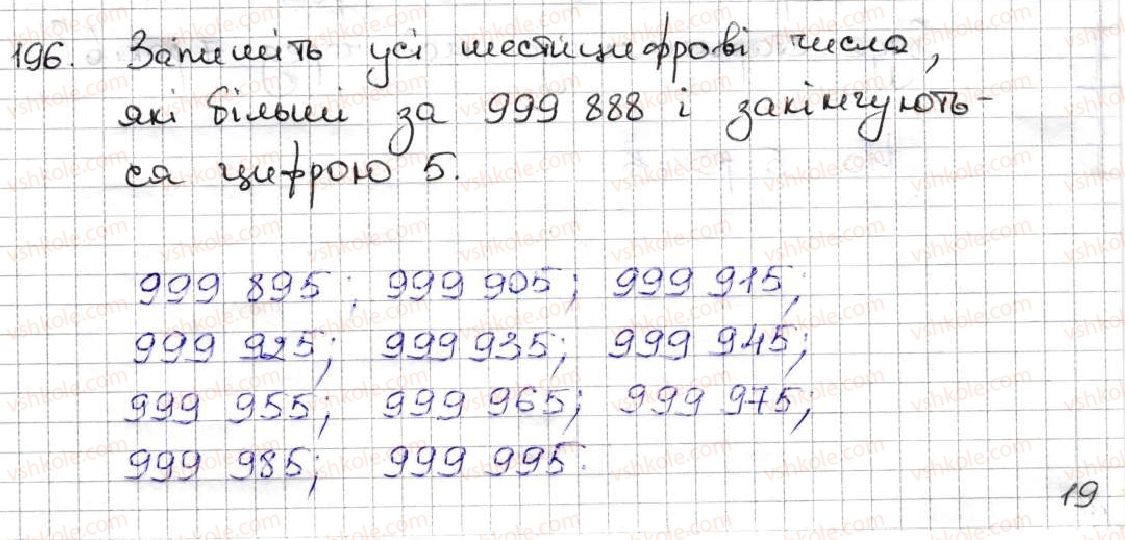 196. Запишіть усі шестицифрові числа,
які більші за 999 888 і закінчують-
ся цифрою 5.
999 895; 999 905; 999 915;
999 925; 999 935; 999 945;
999 955; 999 965; 999 975;
999 985; 999 995.
19